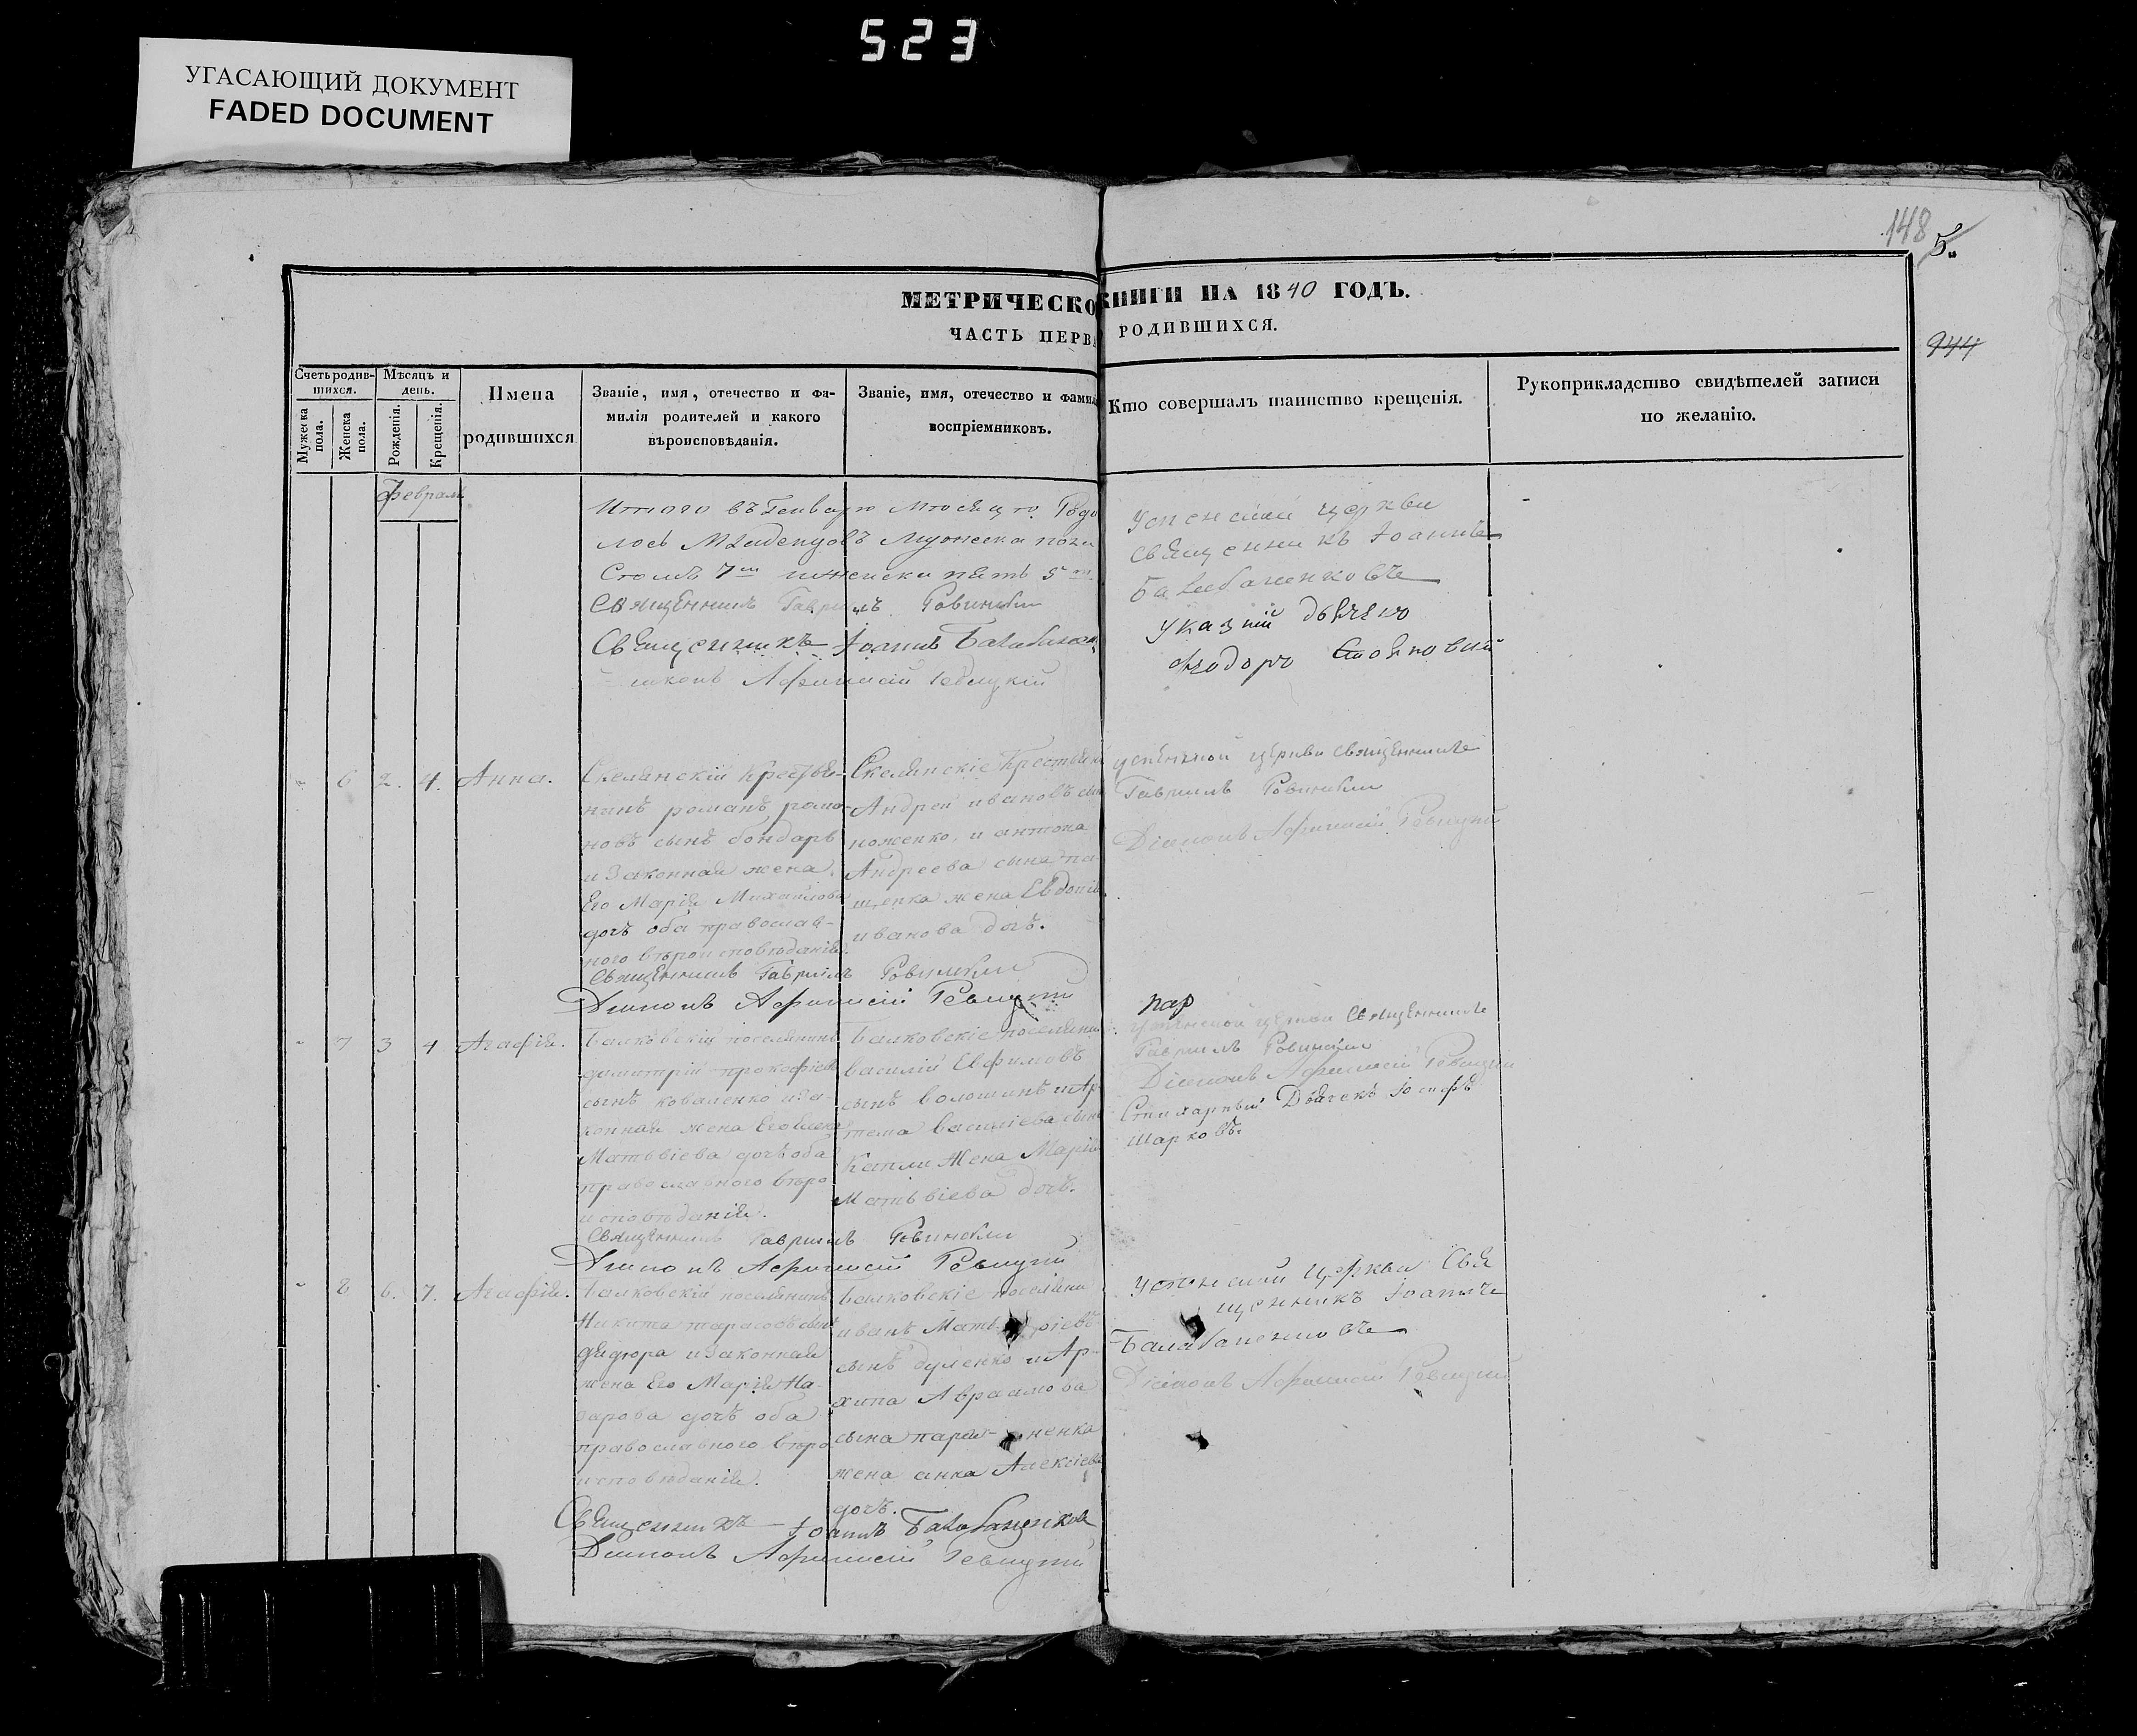 523
УГАСАЮЩИЙ ДОКУМЕНТ
FADED DOCUMENT
148 5.
944
МЕТРИЧЕСКО КНИГИ НА 1840 ГОДЪ.
ЧАСТЬ ПЕРВА РОДИВШИХСЯ.
Счетъ родив-
шихся.
Мужеска пола.
Женска пола.
Мѣсяцъ и
день.
Рожденія.
Крещенія.
Имена
родившихся
Званіе, имя, отечество и фа-
милія родителей и какого
вѣроисповѣданія.
Званіе, имя, отечество и фамил
воспріемниковъ.
Кто совершалъ таинство крещенія.
Рукоприкладство свидѣтелей записи
по желанію.
феврал
Итого въ Генваръ Родо
лось Младенцовъ Мужеска пола
7 пять 5
Священникъ Гавриилъ Ровинскій
Священникъ Іоаннъ
Афанасій Ревицкій
церкви
священникъ Іоаннъ
Балабаненковъ
дьячекъ
6 2. 4. Анна.
Скелянскій Крестья-
нинъ романъ рома-
новъ сынъ бондарь
и законная жена
Его Марія Михайлова
дочь оба православ-
ного вѣроисповѣданія.
Священникъ Гавриилъ Ровинскій
Діаконъ Афанасій Ревицкій
Скелянскіе Крестьяне
Андрей ивановъ сынъ
ноженко, и антона
Андреева сына па-
щенка жена Евдокія
иванова дочь.
церкви священникъ
Гавриилъ Ровинскій
Діаконъ Афанасій Ревицкій
7 3 4 Агафія.
Балковскій поселянинъ
димитрій прокофіевъ
сынъ коваленко и за-
конная жена Его
Матьвіева дочь оба
православного вѣро
исповѣданія.
Священникъ Гавриилъ Ровинскій
Діаконъ Афанасій Ревицкій
Балковскіе поселяни
василій Евфимовъ
сынъ волошинъ и Ар-
тема василіева сына
Капли Жена Марія
Матьвіева дочь.
пар
церкви священникъ
Гавриилъ Ровинскій
Діаконъ Афанасій Ревицкій
Стихарный Дьячекъ Іосифъ
Шарковъ.
8 6. 7. Агафія.
Балковскій поселянинъ
Никита тарасовъ сынъ
дядюра и законная
жена Его Марія На-
зарова дочь оба
православного вѣро
исповѣданія.
Священникъ Іоаннъ Балабаненков
Діаконъ Афанасій Ревицкій
Балковскіе поселяни
иванъ
сынъ и Ар-
хипа Авраамова
сына ненка
жена анна Алексіева
дочь.
церкви Свя
щенникъ Іоаннъ
Балабаненковъ
Діаконъ Афанасій Ревицкій